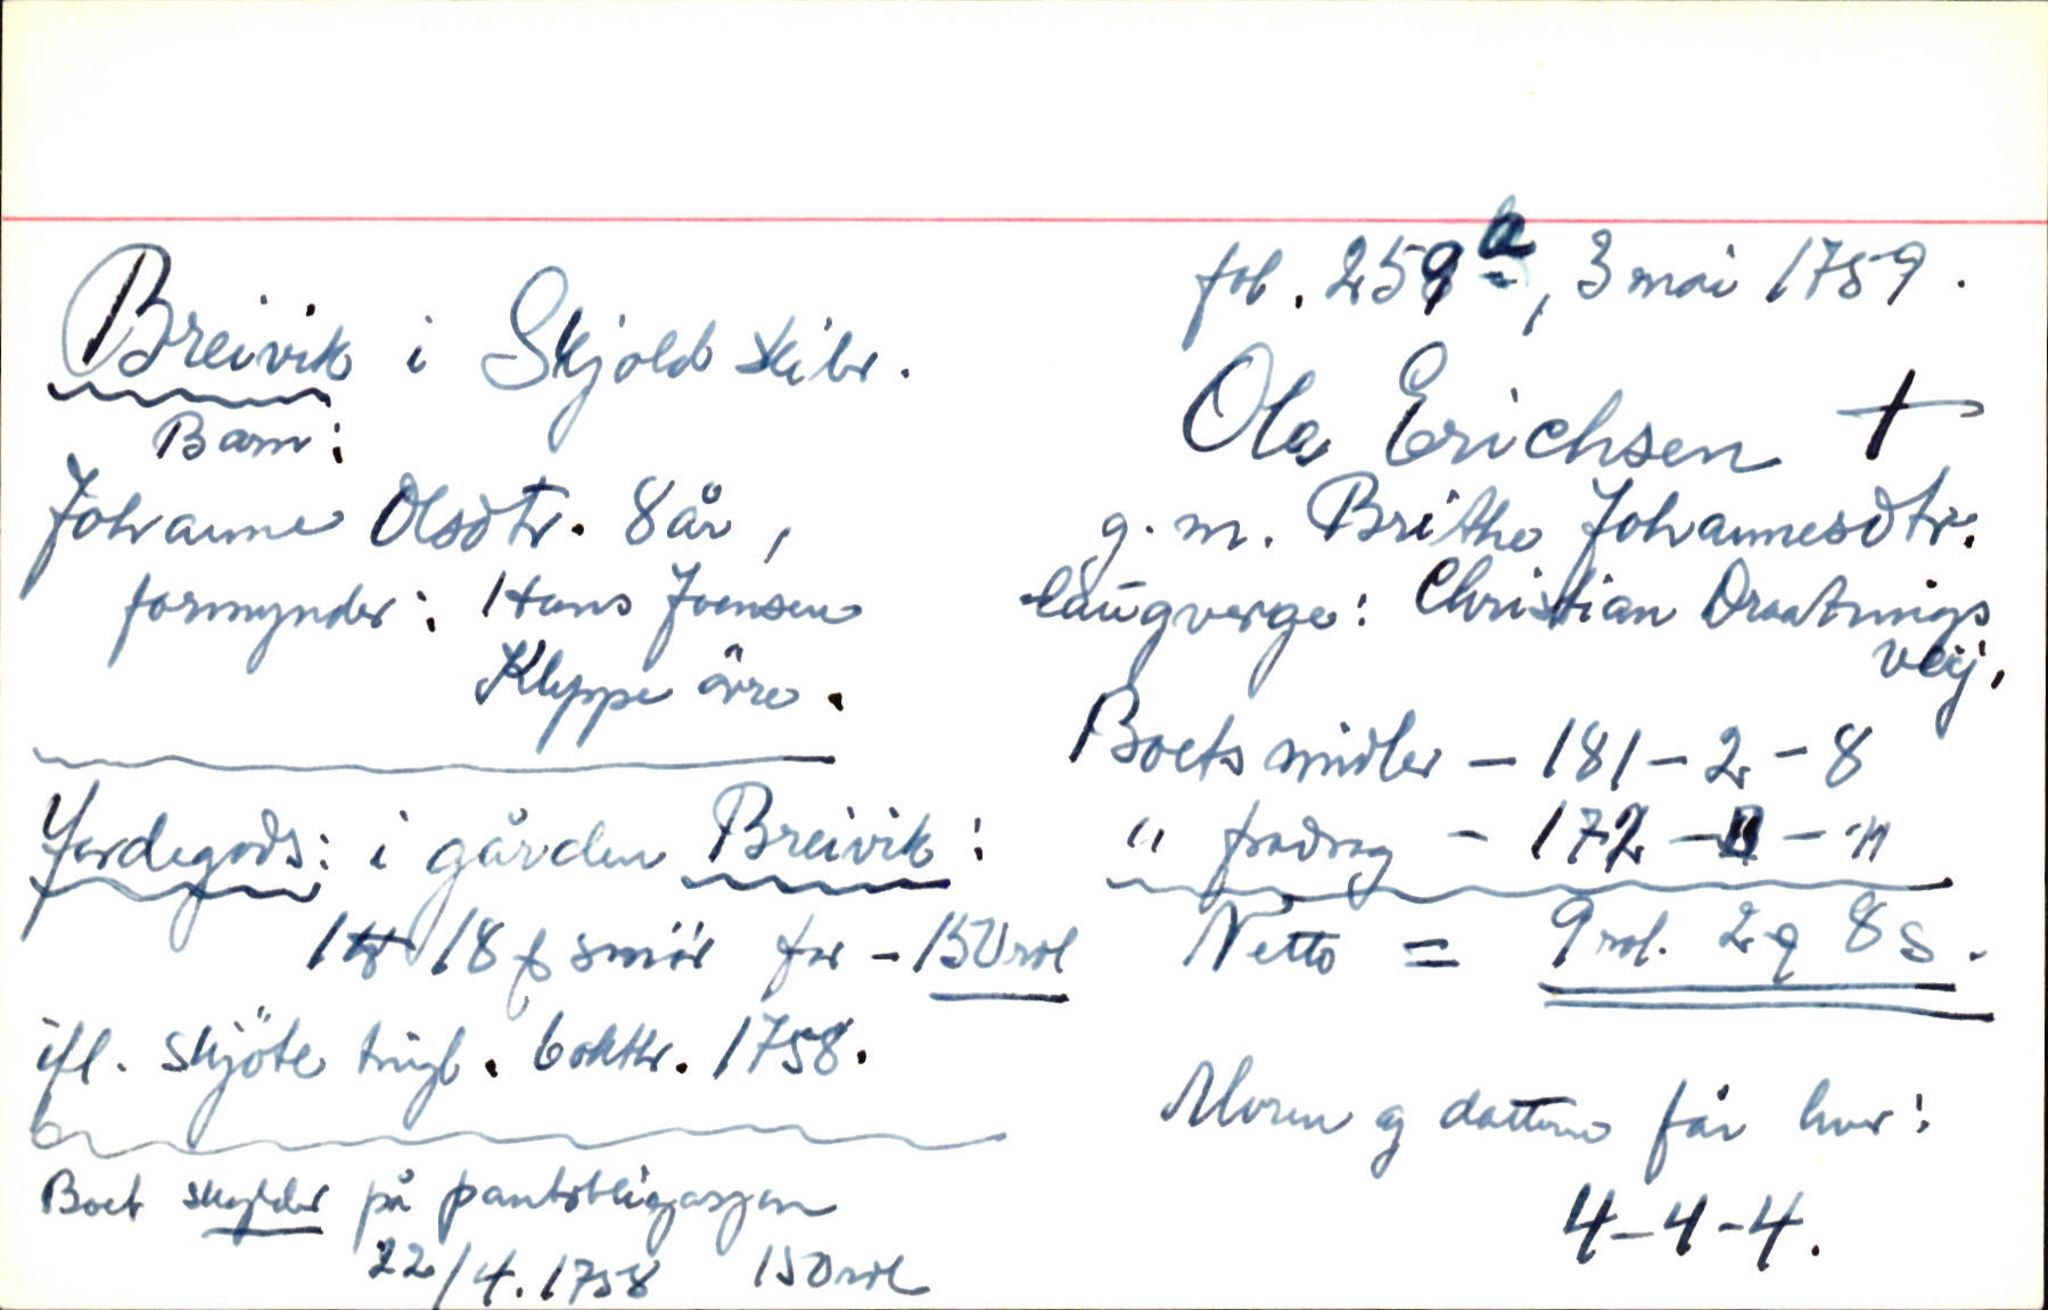 Breivik i Skjold skibr.
Barn:
Johanne Olsdtr. 8 år,
formynder: Hans Joensen
Kleppe övre.
Jordegods: i gården Breivik:
18 smör for - 150 rdl
ifl. skjöte tingl. oktbr. 1758.
Boet skylder på pantobligasjon
22/4. 1758 150 rdl
fol. 259a, 3 mai 1759.
Ola Erichsen †
g. m. Brithe Johannesdtr.
laugverge: Christian Dronnings
veij.
Boets midler - 181 - 2 - 8
" fradrag - 172 - " - "
Netto = 9 rdl. 2 q 8 s.
Moren og datteren får hver:
4-4-4.